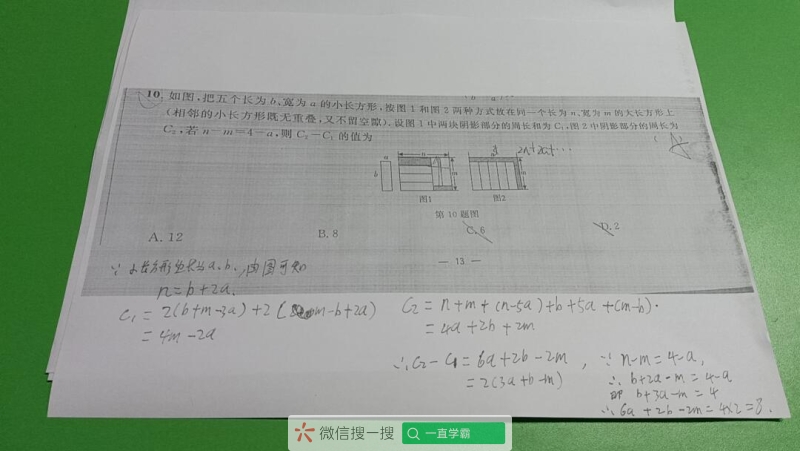 10. 如图,把五个长为 b、宽为 a 的小长方形,按图 1 和图 2 两种方式放在同一个长为 n、宽为 m 的大长方形上
(相邻的小长方形既无重叠,又不留空隙). 设图 1 中两块阴影部分的周长和为 C₁,图 2 中阴影部分的周长为
C₂,若 n-m=4-a,则 C₂-C₁ 的值为
( A )
b
图1
图2
第 10 题图
A. 12
B. 8
C. 6
D. 2
— 13 —
∵ 小长方形 a、b, 由图可知
n=b+2a.
C₁ = 2(b+m-3a)+2( m-b+2a)
= 4m-2a
C₂ = n+m+(n-5a)+b+5a+(m-b).
= 4a+2b+2m
∴ C₂-C₁ = 6a+2b-2m
= 2(3a+b-m)
, ∵ n-m=4-a,
∴ b+2a-m=4-a
即 b+3a-m=4
∴ 6a+2b-2m=4×2=8.
微信搜一搜
一直学霸